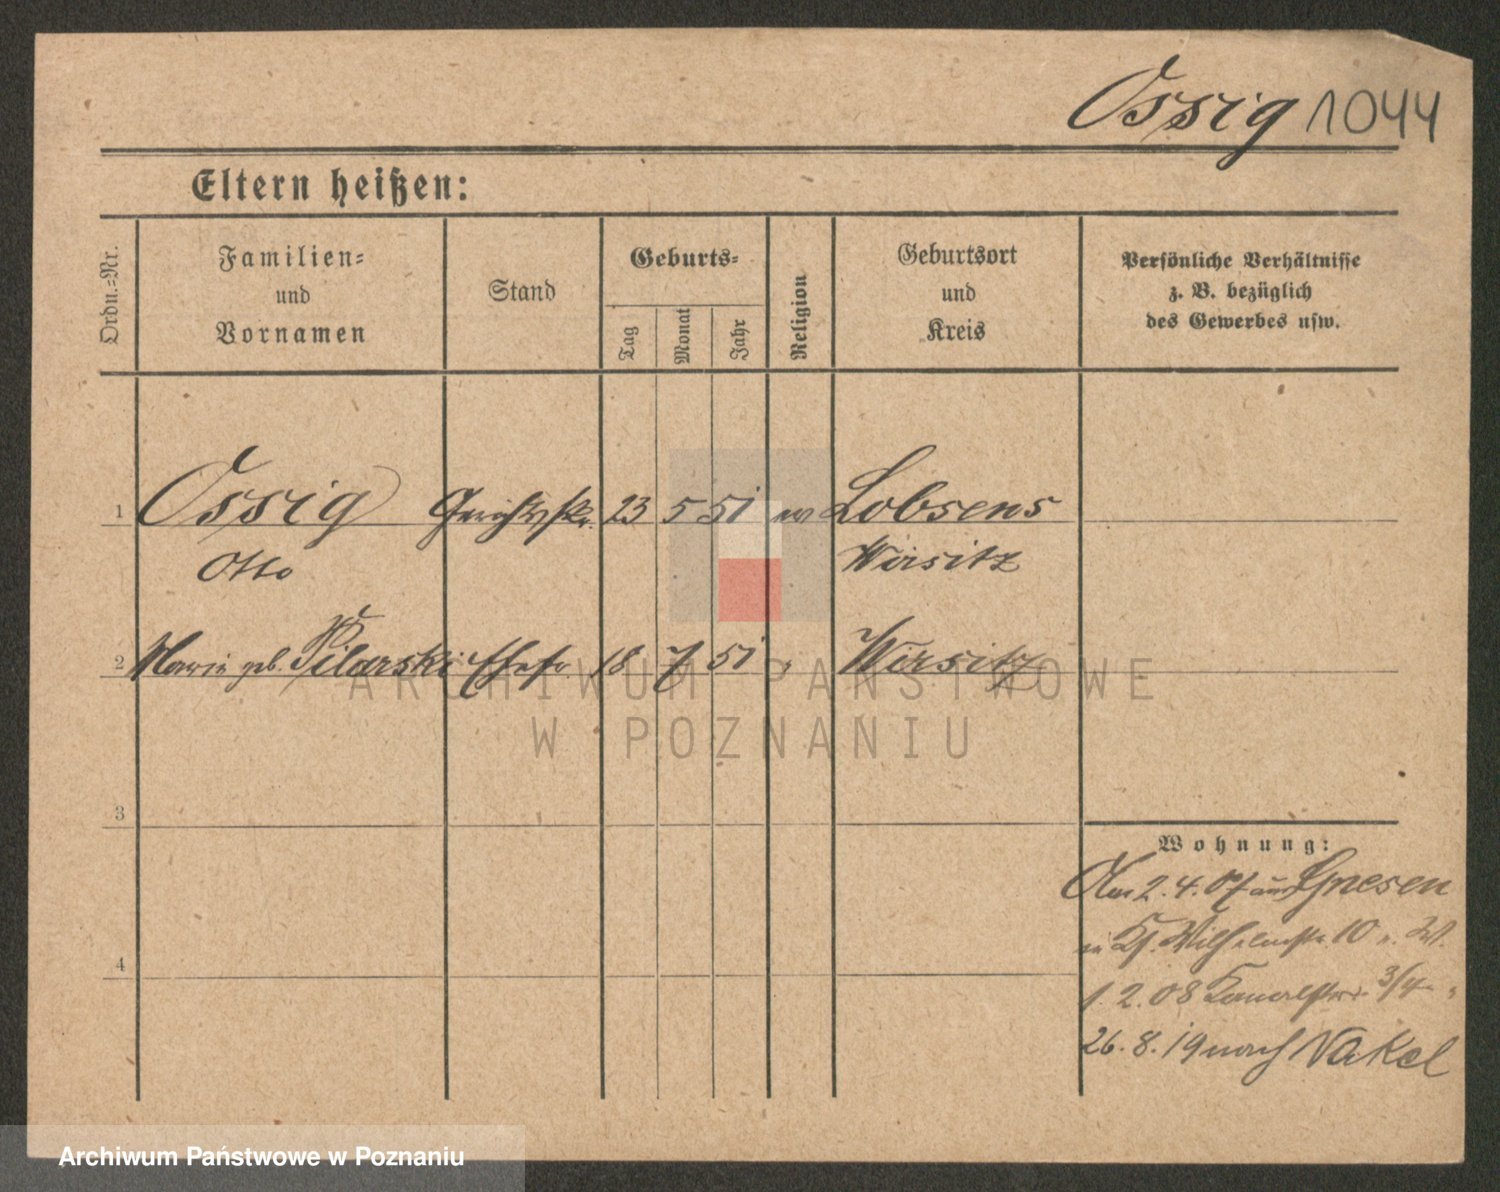 Ossig 1044
Eltern heißen:
Ordn.-Nr.
Familien-
und
Vornamen
Stand
Geburts-
Tag
Monat
Jahr
Religion
Geburtsort
und
Kreis
Persönliche Verhältnisse
z. B. bezüglich
des Gewerbes usw.
1 Ossig 23 5 51 ev Lobsens
Otto Wirsitz
2 Marie geb. Pilarski Ehefr. 18 7 51 " Wirsitz
3
4
Wohnung:
Am 2. 4. 07 aus Gnesen
Wilhelmstr. 10
1. 2. 08 3/4
26. 8. 19 nach Nakel
ARCHIWUM PAŃSTWOWE
W POZNANIU
Archiwum Państwowe w Poznaniu